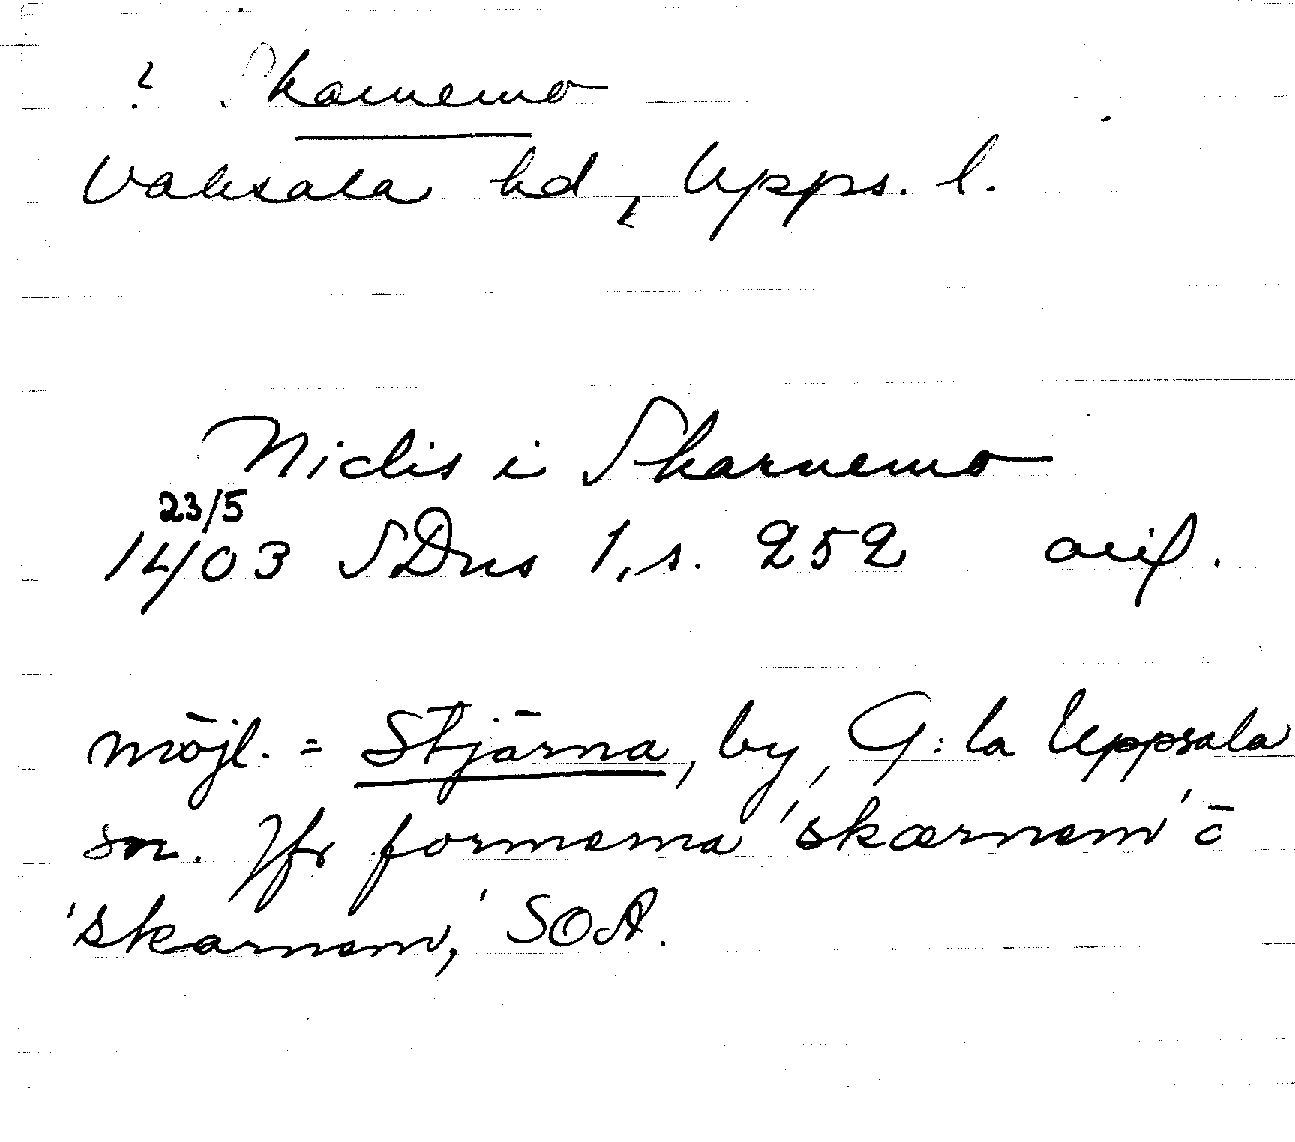 ? Skarnemo
Vaksala hd, Upps. l.
Niclis i Skarnemo
23/5
1403 SDns 1, s. 252 avf.
möjl. = Stjärna, by, G:la Uppsala
sn. Jfr formerna 'skærnem' o
'skarnem,' SOA.